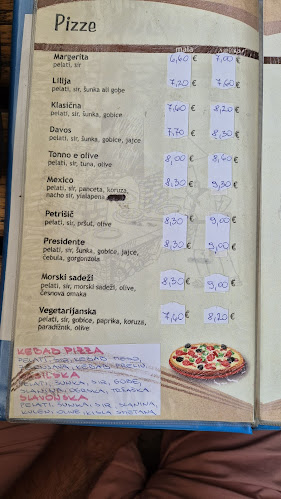 Pizze
mala
Margerita 6,60 € 7,00 €
pelati, sir
Lilija 7,20 € 7,60 €
pelati, sir, šunka ali gobe
Klasična 7,60 € 8,20 €
pelati, sir, šunka, gobice
Davos 7,70 € 8,30 €
pelati, sir, šunka, gobice, jajce
Tonno e olive 8,00 € 8,60 €
pelati, sir, tuna, olive
Mexico 8,30 € 9,30 €
pelati, sir, panceta, koruza,
nacho sir, yalapena
Petrišič 8,30 € 9,00 €
pelati, sir, pršut, olive
Presidente 8,30 € 9,00 €
pelati, sir, šunka, gobice, jajce,
čebula, gorgonzola
Morski sadeži 8,30 € 9,00 €
pelati, sir, morski sadeži, olive,
česnova omaka
Vegetarijanska 7,60 € 8,20 €
pelati, sir, gobice, paprika, koruza,
paradižnik, olive
KEBAB PIZZA
PELATI, SIR, KEBAB MESO,
PELATI, ŠUNKA, SIR, GOBE,
SLAVONSKA
PELATI, ŠUNKA, SIR, SLANINA,
KULEN, OLIVE, KISLA SMETANA